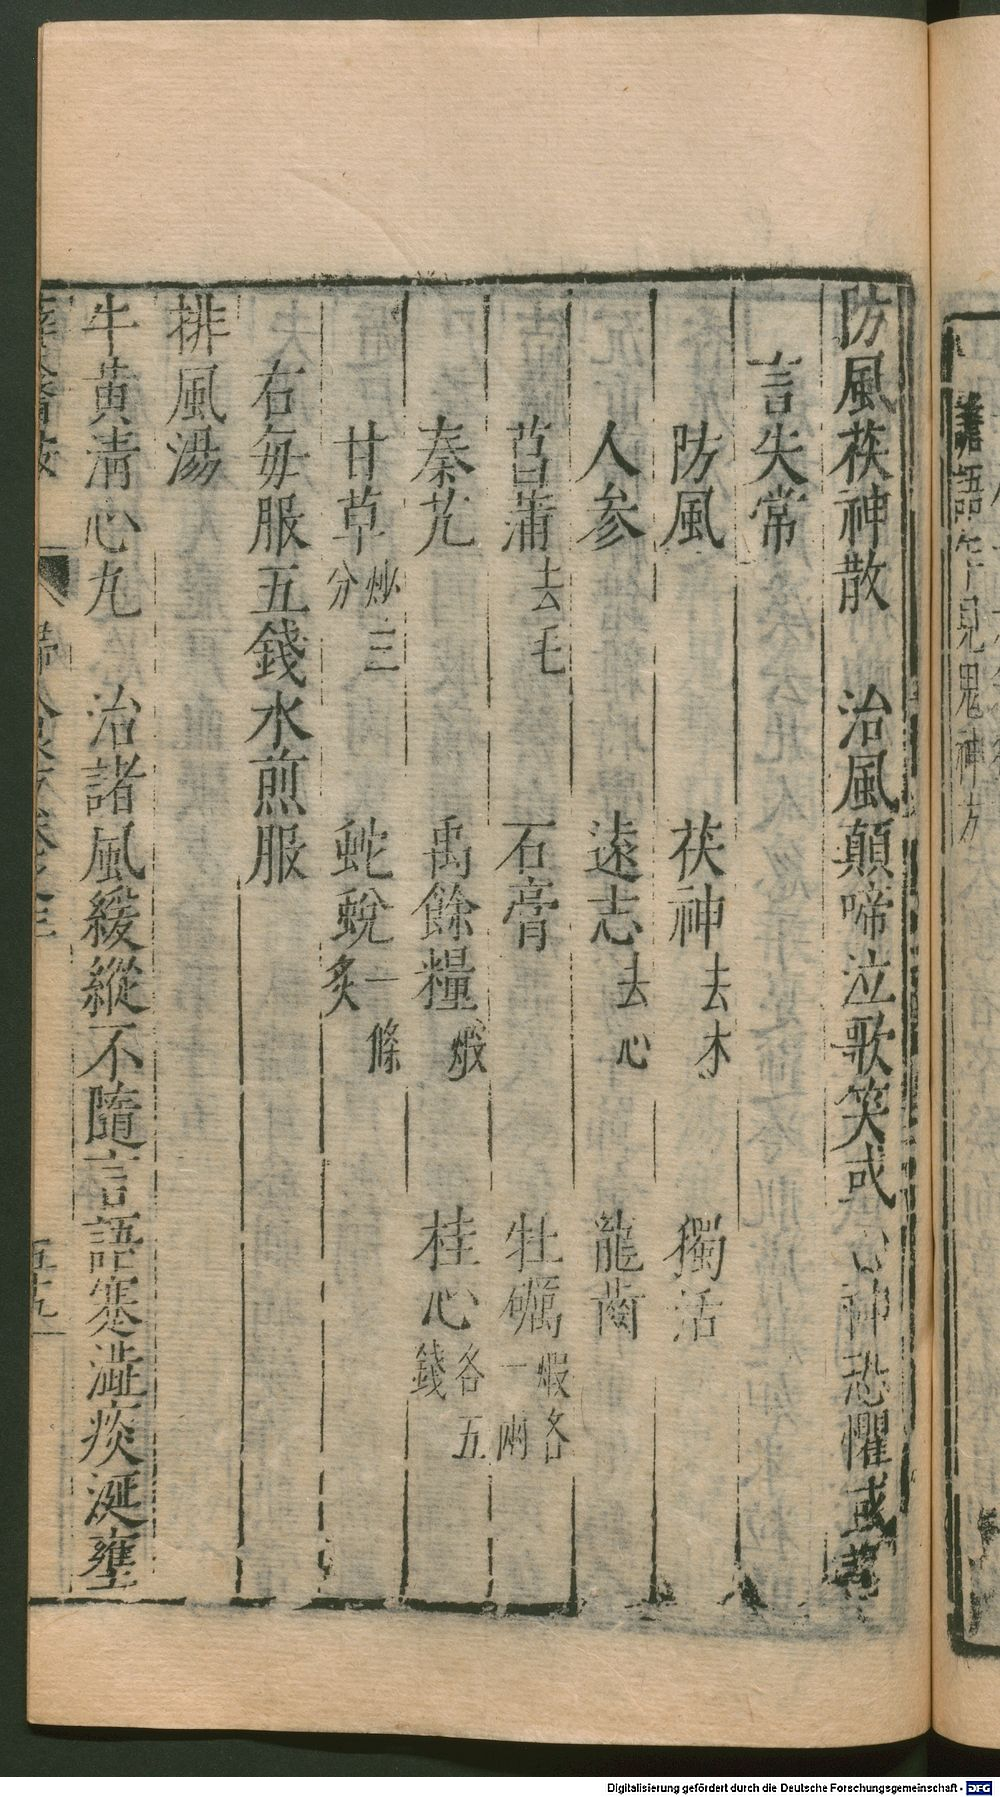 防風茯神散　治風顛啼泣歌笑或心神恐懼或
言失常
防風　茯神去木　獨活
人參　遠志去心　龍齒
菖蒲去毛　石膏　牡礪煅各一兩
秦艽　禹餘糧煅　桂心各五錢
甘草炒三分　蛇蛻一條炙
右每服五錢水煎服
排風湯
牛黃清心丸　治諸風緩縱不隨言語蹇澁痰涎壅
五十九
語　見鬼神方
Digitalisierung gefördert durch die Deutsche Forschungsgemeinschaft - DFG